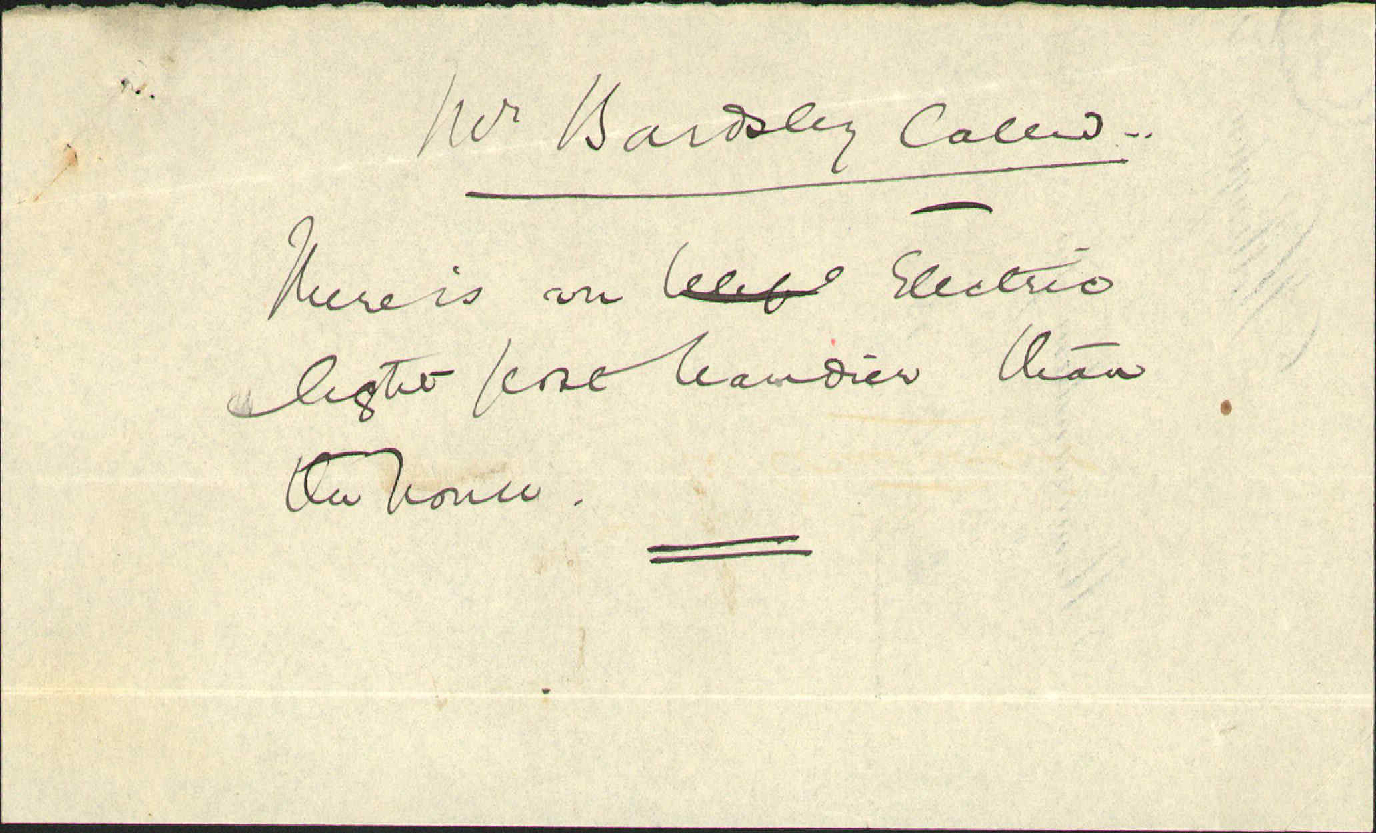 Mr Bardsley Called..
There is an Electric
light post handier than
the house.